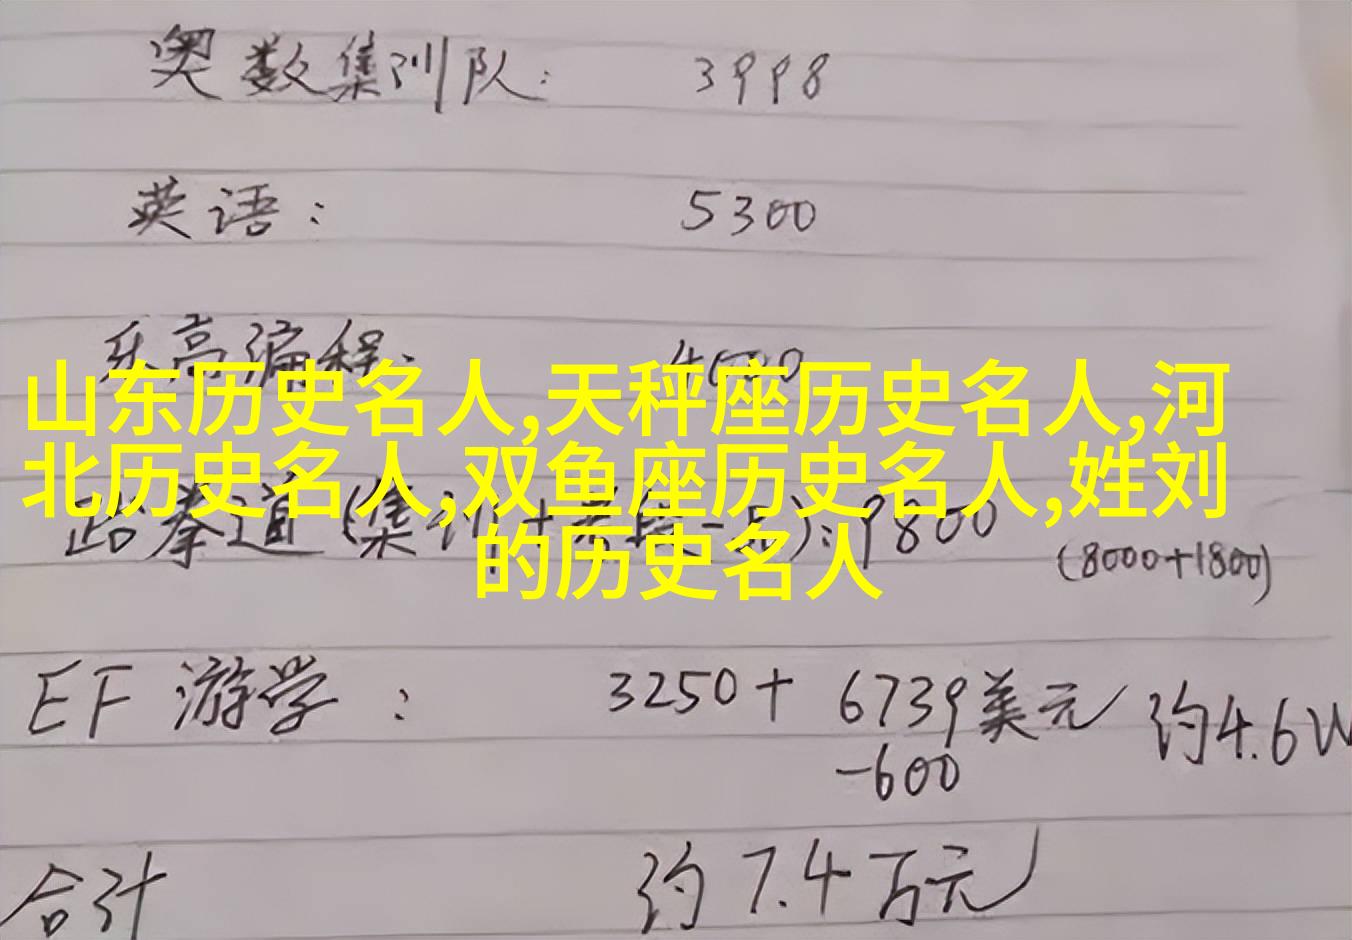 奥数集训队: 3998
英语: 5300
乐高编程:
山东历史名人,天秤座历史名人,河
北历史名人,双鱼座历史名人,姓刘
的历史名人
跆拳道(集训+考段一品):9800
(8000+1800)
EF 游学: 3250+ 6739美元 约4.6W
-600
合计 约7.4万元